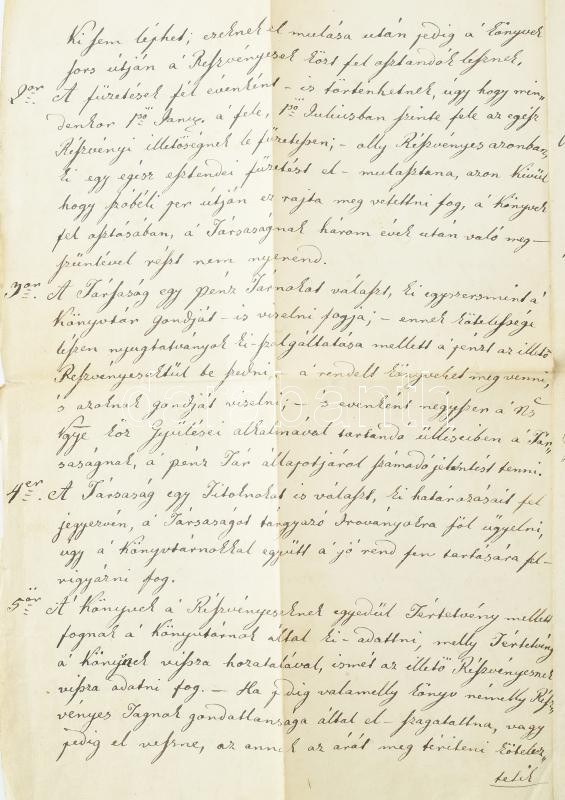 Ki sem léphet; ezeknek el mulása után pedig á Könyvek
sors útján a Részvényesek közt fel osztandók lesznek.
2or A fizetések fél évenként – is történhetnek, úgy hogy min„
denkor 1ső Janr. á fele, 1ső Juliusban szinte fele az egész
Részvényi illetőségnek le fizetessen; – olly Részvényes azonban,
ki egy egész esztendei fizetést el – mulasztana, azon kivül
hogy szóbéli per útján ez rajta meg vétettni fog, á Könyvek
fel osztásában, á Társaságnak három évek után való meg–
szüntével részt nem nyerend.
3or. A Társaság egy pénz Tárnokot választ, ki egyszersmint á
Könyvtár gondját – is viselni fogja; – ennek kötelessége
lészen nyugtatványok ki-szolgáltatása mellett á pénzt az illető
Részvényesektül be szedni, – á rendelt Könyveket meg venni,
s azoknak gondját viselni; – s evenként négyszer á Ns
Vgye köz Gyülései alkalmával tartandó ülléseiben á Tár„
saságnak, á pénz Tár állapotjáról számadó jelentést tenni.
4er. A Társaság egy Titoknokot is választ, ki határozásait fel
jegyezvén, á Társaságot tárgyazó Irományokra föl ügyelni,
úgy á Könyvtárnokkal együtt á jó rend fen tartására fel–
vigyázni fog.
5ör A Könyvek á Részvényeseknek egyedül Tértetvény mellett
fognak á Könyvtárnok által ki-adattni, melly Tértetvény
á Könyvnek vissza hozatalával, ismét az illető Részvényesnek
vissza adatni fog. – Ha pedig valamelly Könyv nemelly Rész„
vényes Tagnak gondatlansaga által el–szagatattna, vagy
pedig el veszne, az annak az árát meg tériteni kötelez„
tetik
darabanth